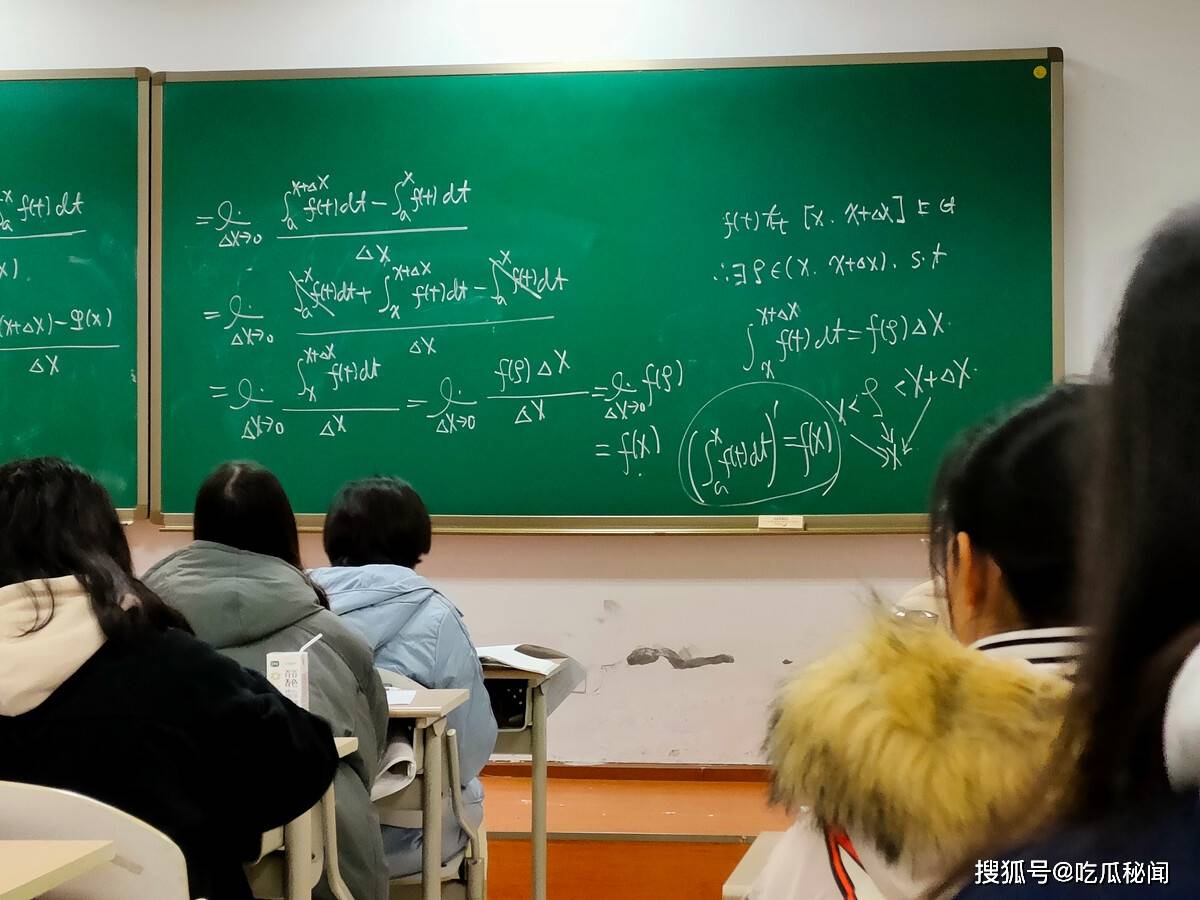 ∫ₐˣ f(t)dt
x)
(x+Δx)-φ(x)
Δx
= lim_{Δx→0} (∫ₐ^{x+Δx} f(t)dt - ∫ₐˣ f(t)dt) / Δx
= lim_{Δx→0} (∫ₐˣ f(t)dt + ∫ₓ^{x+Δx} f(t)dt - ∫ₐˣ f(t)dt) / Δx
= lim_{Δx→0} (∫ₓ^{x+Δx} f(t)dt) / Δx = lim_{Δx→0} (f(ξ)Δx) / Δx = lim_{Δx→0} f(ξ)
= f(x)
(∫ₐˣ f(t)dt)' = f(x)
f(t)在 [x, x+Δx] 上
∴∃ξ∈(x, x+Δx), s.t
∫ₓ^{x+Δx} f(t)dt = f(ξ)Δx
x < ξ < x+Δx
x
搜狐号@吃瓜秘闻